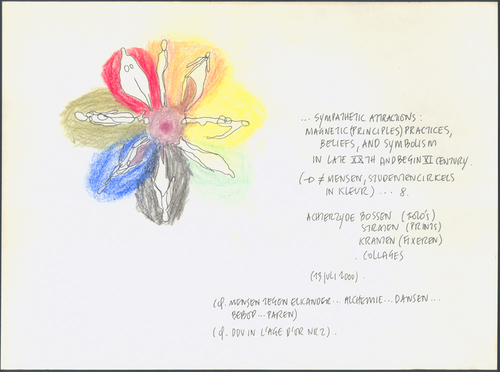 ... SYMPATHETIC ATTRACTIONS :
MAGNETIC (PRINCIPLES) PRACTICES,
BELIEFS, AND SYMBOLISM
IN LATE XXTH AND BEGIN XXI CENTURY.
(→ ≠ MENSEN, STUDENTENCIRKELS
IN KLEUR) ... 8.
ACHTERZYDE BOSSEN (FOTO'S)
STRATEN (PRINTS)
KRANTEN (FIXEREN)
. COLLAGES
(13 JULI 2000) .
(cf. MENSEN TEGEN ELKANDER ... ALCHEMIE ... DANSEN ...
BEBOP ... PAREN)
(cf. DDV IN L'AGE D'OR NR 2) ..